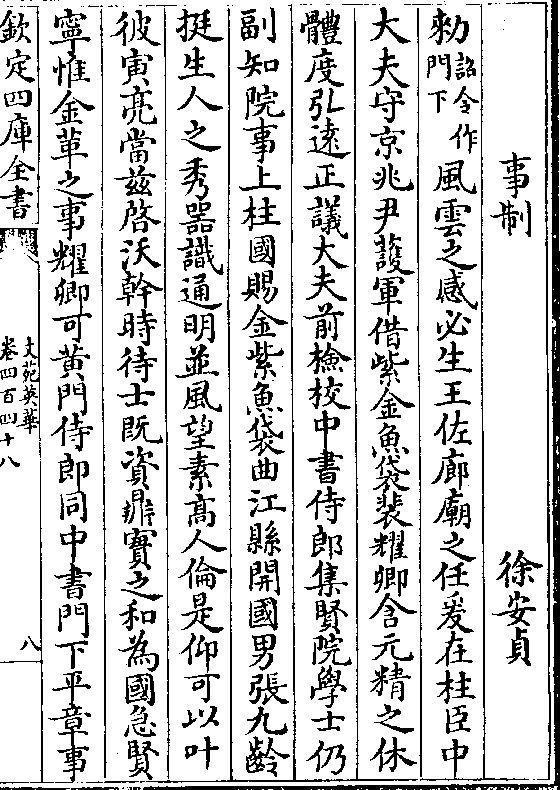 事制　徐安貞
勑詔令作門下風雲之感必生王佐廊廟之任爰在柱臣中
大夫守京兆尹護軍借紫金魚袋裴耀卿含元精之休
體度弘遠正議大夫前檢校中書侍郎集賢院學士仍
副知院事上柱國賜金紫魚袋曲江縣開國男張九齡
挺生人之秀器識通明並風望素高人倫是仰可以叶
彼寅亮當兹啓沃幹時待士既資鼎實之和為國急賢
寧惟金革之事耀卿可黄門侍郎同中書門下平章事
欽定四庫全書
文苑英華
卷四百四十八
八